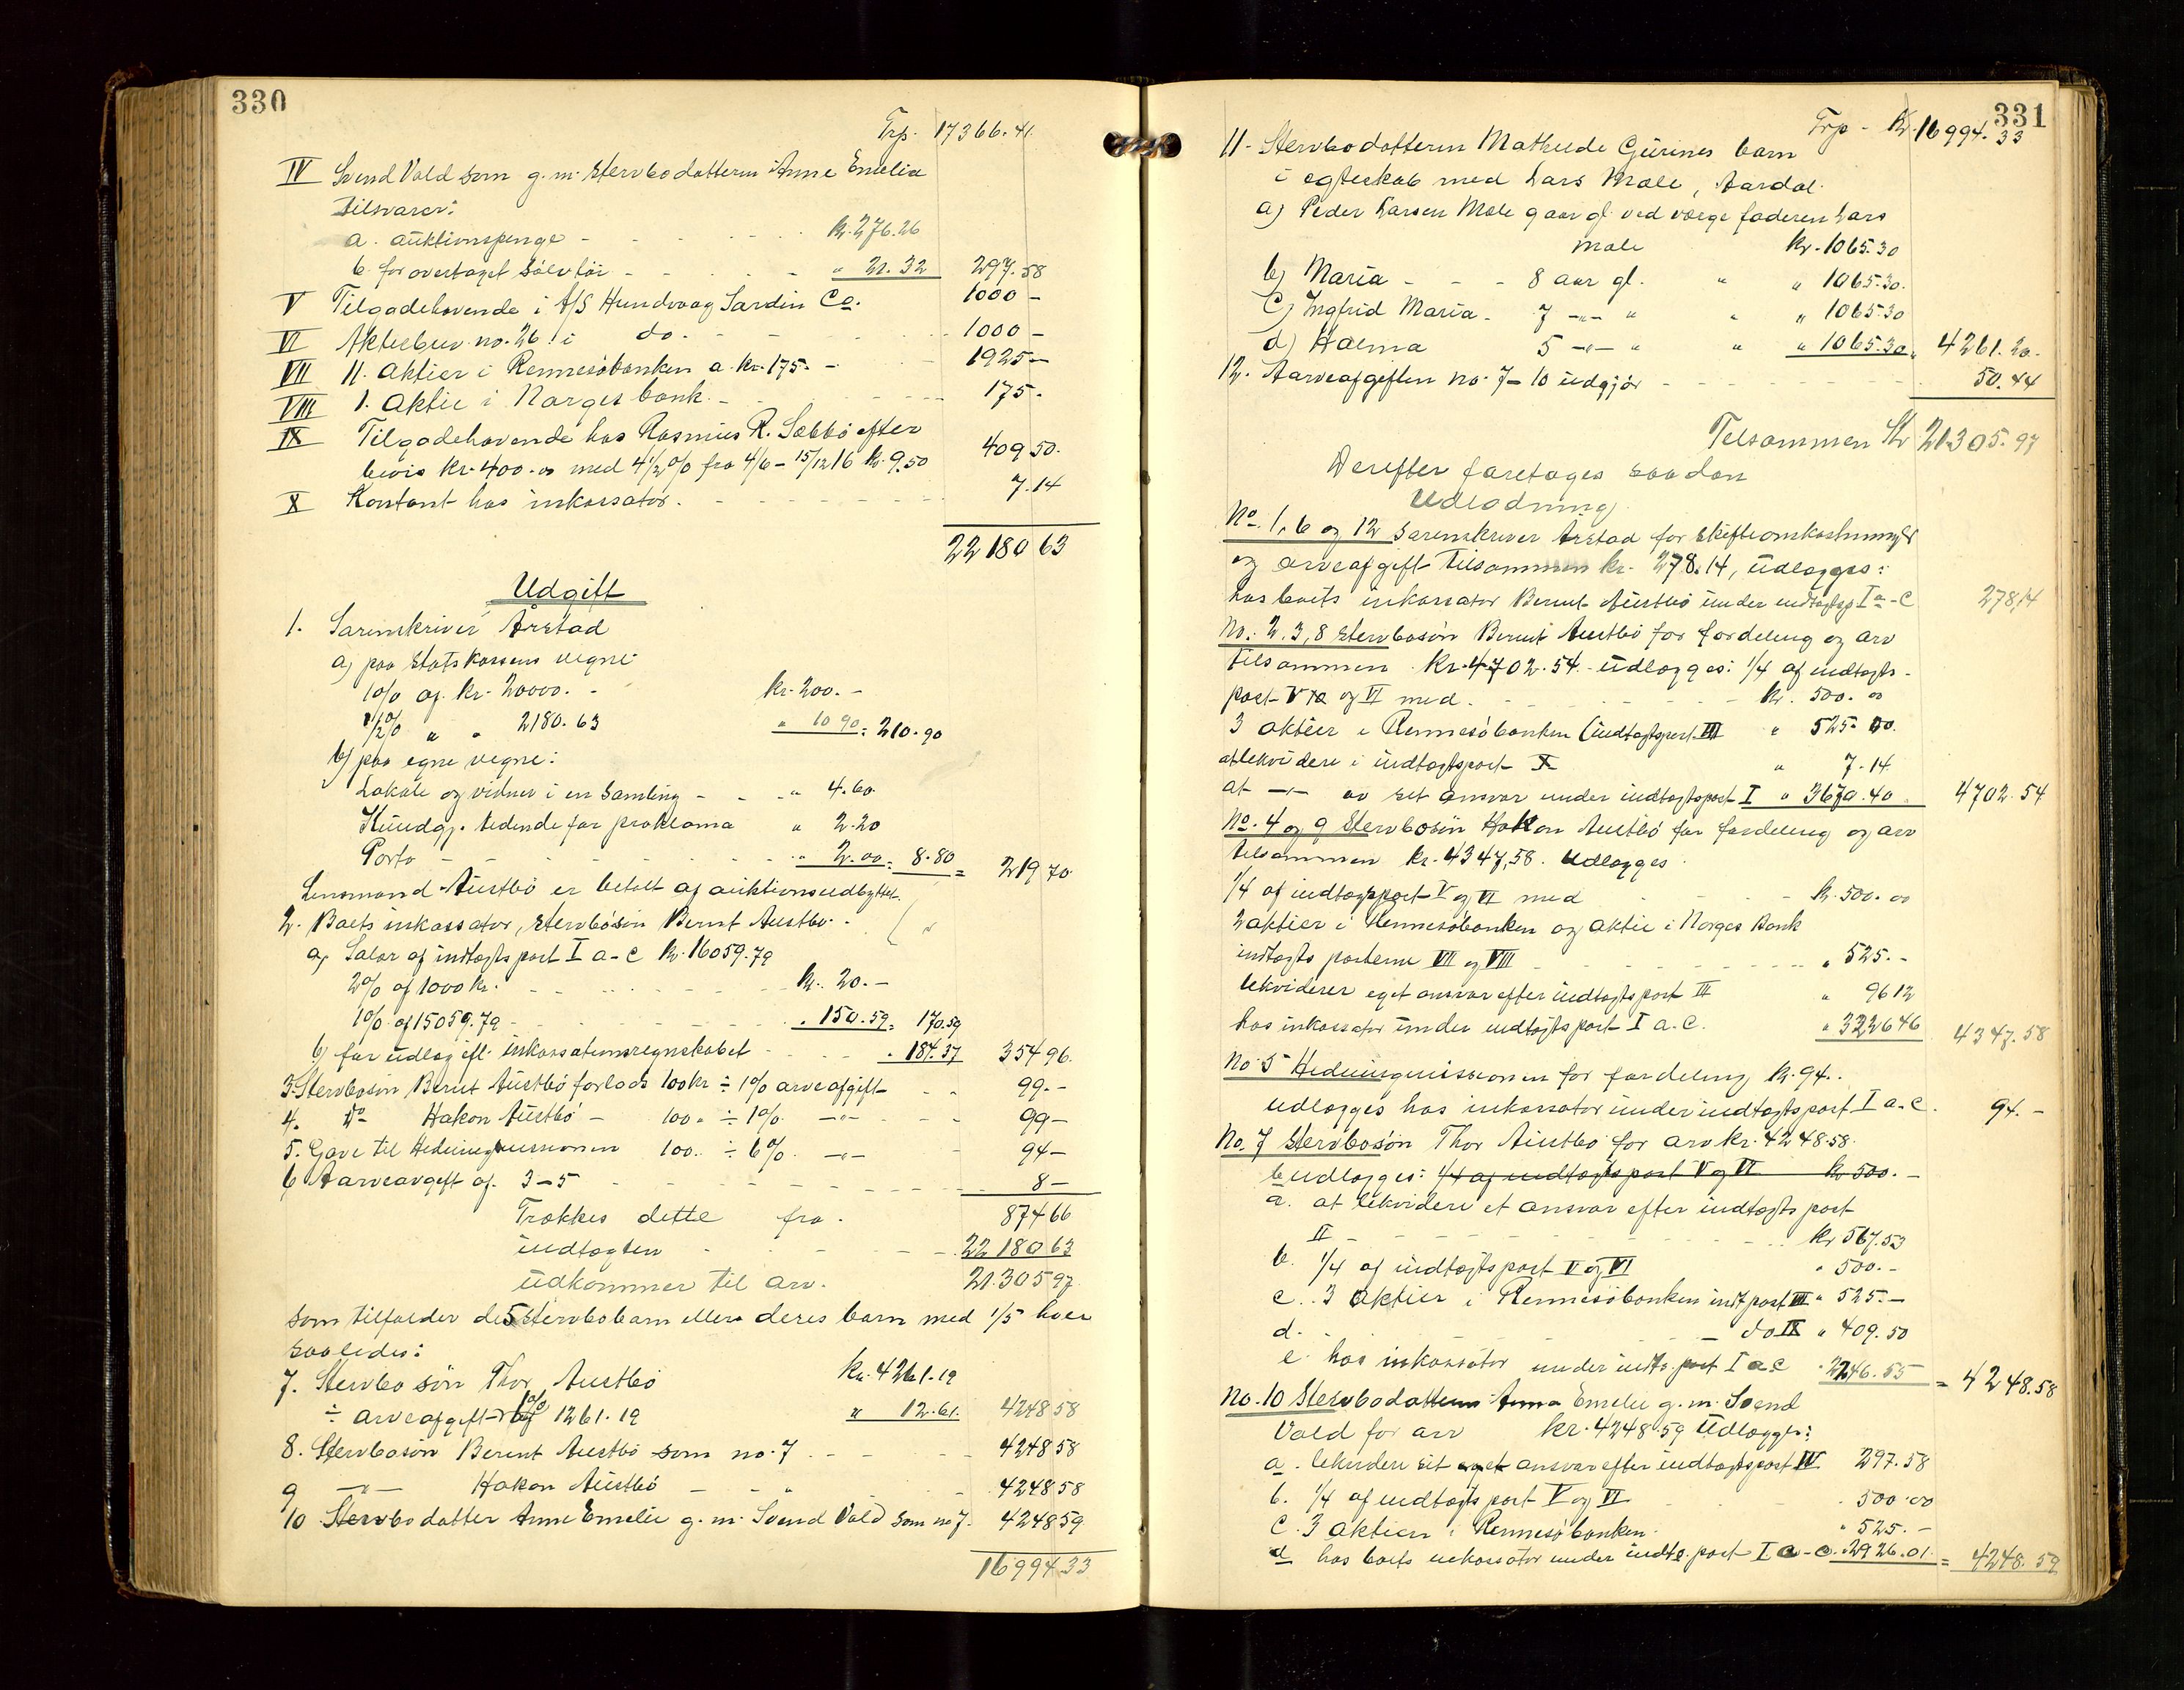 330
Trp. 17366.41
IV Svend Vold som g.m. stervbodatteren Anne Emelie
tilsvarer:
a. auktionspenge - - - - - kr. 276.26
b. for overtaget sölvtöi - - - - - " 21.32 297.58
V Tilgodehavende i A/S Hundvaag Sardin Co. 1000 -
VI Aktiebrev no. 26 i do. - - - - - 1000 -
VII 11 aktier i Rennesöbanken a. kr. 175. - 1925 -
VIII 1. aktie i Norges bank. - - - - 175.
IX Tilgodehavende hos Rasmus R. Sæbbö efter
bevis kr. 400.00 med 4 1/2 % fra 4/6 - 15/12 16 kr. 9.50 409 50.
X Kontant hos inkassator. - - - - - 7.14
22180 63
Udgift
1. Sorenskriver Årstad
a) paa Statskassens vegne:
1 % af. kr. 20000. - kr. 200. -
1/2 % " " 2180.63 " 10 90 = 210.90
b) paa egne vegne:
Lokale og vidner i en samling - - - " 4.60
Kundgj. tidende for proklama " 2.20
Porto - - - - - " 2.00 = 8.80 = 219 70.
Lensmand Austbö er betalt af auktionsudbyttet.
2. Boets inkassator, stervbosön Berent Austbö.
a) Salær af indtægtspost I a-c kr. 16059.79
2 % af 1000 kr. - - - - - kr. 20. -
1 % af 15059.79 - - - - - " 150.59 = 170.59
b) for udlæg efl. inkassationsregnskabet - - - " 184.37 354 96.
3. Stervbosön Berent Austbö forlods 100 kr ÷ 1 % arveafgift - - 99. -
4. Do Hakon Austbö - 100 " ÷ 1 % -"- - - 99 -
5. Gave til Hedningmissionen 100. ÷ 6 % -"- - 94 -
6 Aarveavgift af. 3-5 - - - - - 8 -
Trækkes dette fra. 874 66
indtægten - - - - - 22180 63
udkommer til arv. 21.305 97.
som tilfalder de 5 stervbobarn eller deres barn med 1/5 hver
saaledes:
7. Stervbosön Thor Austbö kr. 4261.19
÷ arveafgift 1% af 1261.19 " 12.61. 4248 58
8. Stervbosön Berent Austbö som no. 7 - - - 4248 58
9 -"- Hakon Austbö - - " - - 4248 58
10 Stervbodatter Anne Emelie g.m. Svend Vold som no 7. 4248 59
16994 33
331
Trp - Kr. 16994.33
11- Stervbodatteren Mathilde Gurines barn
i egteskab med Lars Mæle, Aardal.
a) Peder Larsen Mæle 9 aar gl. ved værge faderen Lars
Mæle kr. 1065.30
b) Maria - - - 8 aar gl. " " 1065.30.
c) Ingfrid Maria - 7 -"- " " " 1065.30
d) Halma 5 -"- " " " 1065.30 = 4261.20.
12. Aarveafgiften no. 7-10 udgjør - - - - - 50.44
Tilsammen Kr 21305.97
Derefter foretages saadan
Udlodning.
No. 1, 6 og 12 Sorenskriver Årstad for skifteomkostninger
og arveafgift tilsammen kr. 278.14, udlægges:
hos boets inkassator Berent Austbö under indtægtsp I a-c 278,14
No. 2. 3, 8 stervbosön Berent Austbö for fordeling og arv
tilsammen kr. 4702.54. udlægges: 1/4 af indtægts-
post V og VI med. - - - - - kr. 500.00
3 aktier i Rennesöbanken (indtægtspost VII " 525.00.
at likvidere i indtægtspost X " 7.14
at -"- av sit ansvar under indtægtspost I " 3670.40. 4702.54
No. 4 og 9 Stervbosön Hakon Austbö for fordeling og arv
tilsammen kr. 4347,58. Udlægges
1/4 af indtægtspost V og VI med - - - - kr. 500.00
2 aktier i Rennesöbanken og aktie i Norges Bank
indtægts posterne VII og VIII - - - - - " 525. -
likviderer eget ansvar efter indtægtspost III " 9612
hos inkassator under indtægtspost I a.c. " 322646 4347.58
No 5 Hedningmissionen for fordeling kr. 94..
udlægges hos inkassator under indtægtspost I a-c. 94. -
No. 7 Stervbosön Thor Austbö for arv kr. 4248.58.
b udlægges: 1/4 af indtægtspost V og VI kr 500. -
a. at likvidere et ansvar efter indtægtspost
II - - - - - kr 567.53
b. 1/4 af indtægtspost V og VI " 500. -
c. 3 aktier i Rennesöbanken indt post VII " 525. -
d. - do IX " 409.50
e. hos inkassator under indt. post I a c " 2246.55 = 4248.58
No. 10 Stervbodatteren Anna Emelie g.m. Svend
Vold for arv kr. 4248.59 Udlægges:
a. likvidere sit eget ansvar efter indtægtspost IV 297.58
b. 1/4 af indtægtspost V og VI - - 500.00
c. 3 aktier i Rennesöbanken. " 525. -
d hos boets inkassator under indt. post I a-c. 2926.01. = 4248.59